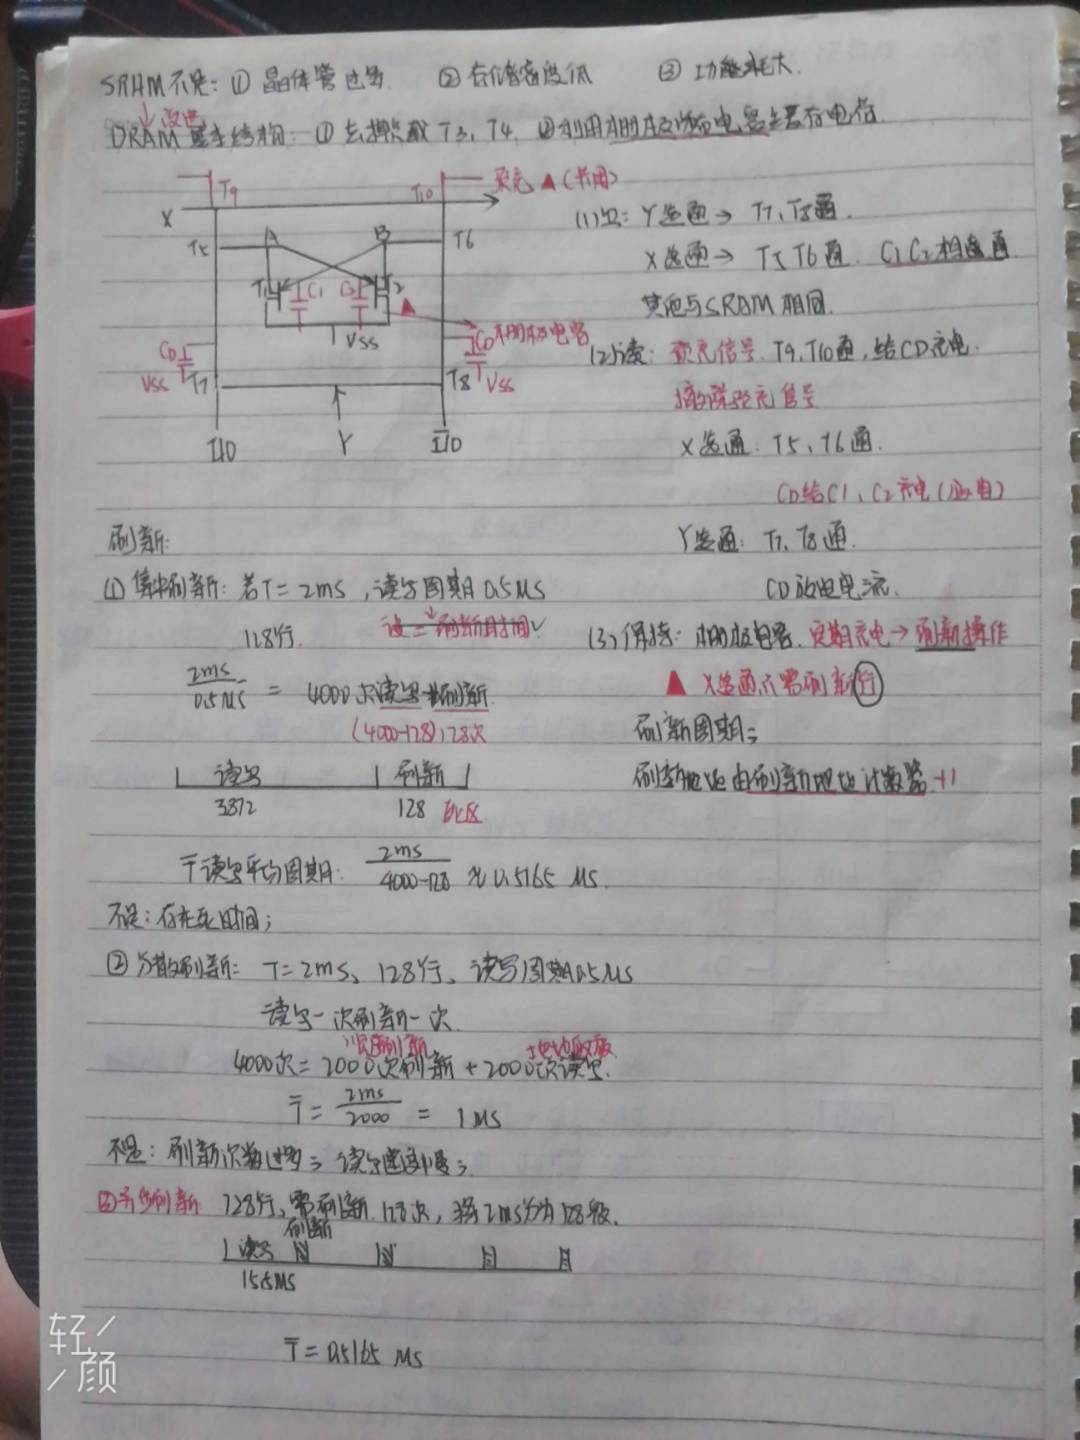 SRAM不足：① 晶体管过多 ② 存储密度低 ③ 功能耗大.
↓没电
DRAM 基本结构：① 去掉负载 T3、T4. ②利用栅极分布电容上暂存电荷.
T9 T10 预充 ▲(共用)
X
T5 A B T6
T1 C1 C2 T2 ▲
VSS
栅极电容
CD CD
VSS T7 T8 VSS
I/O Y I/O
(1)写：Y选通→ T7、T8通.
X选通→ T5 T6通. C1 C2相连通
其他与SRAM相同.
(2)读：预充信号. T9、T10通，给CD充电.
撤除预充信号
X选通. T5、T6通.
CD给C1、C2充电(放电)
Y选通. T7、T8通.
CD放电电流.
(3)保持：栅极电容. 定期充电→刷新操作
▲ X选通只需刷新行
刷新周期:
刷新地址由刷新地址计数器+1
刷新:
① 集中刷新：若T=2ms，读写周期0.5μs
128行. 读=刷新时间
2ms/0.5μs = 4000次读写+刷新
(4000-128) 128次
读写 刷新
3872 128 死区
T读写平均周期: 2ms/4000-128 ≈0.5165 μs.
不足：存在死时间;
② 分散刷新: T=2ms、128行、读写周期0.5μs
读写一次刷新一次.
4000次= 2000次刷新+2000次读写.
T = 2ms/2000 = 1μs
不足：刷新次数过多; 读写速度慢;
③异步刷新 128行，需刷新128次，将2ms分为128段.
刷新
读写
15.5μs
T=0.5165 μs
轻颜